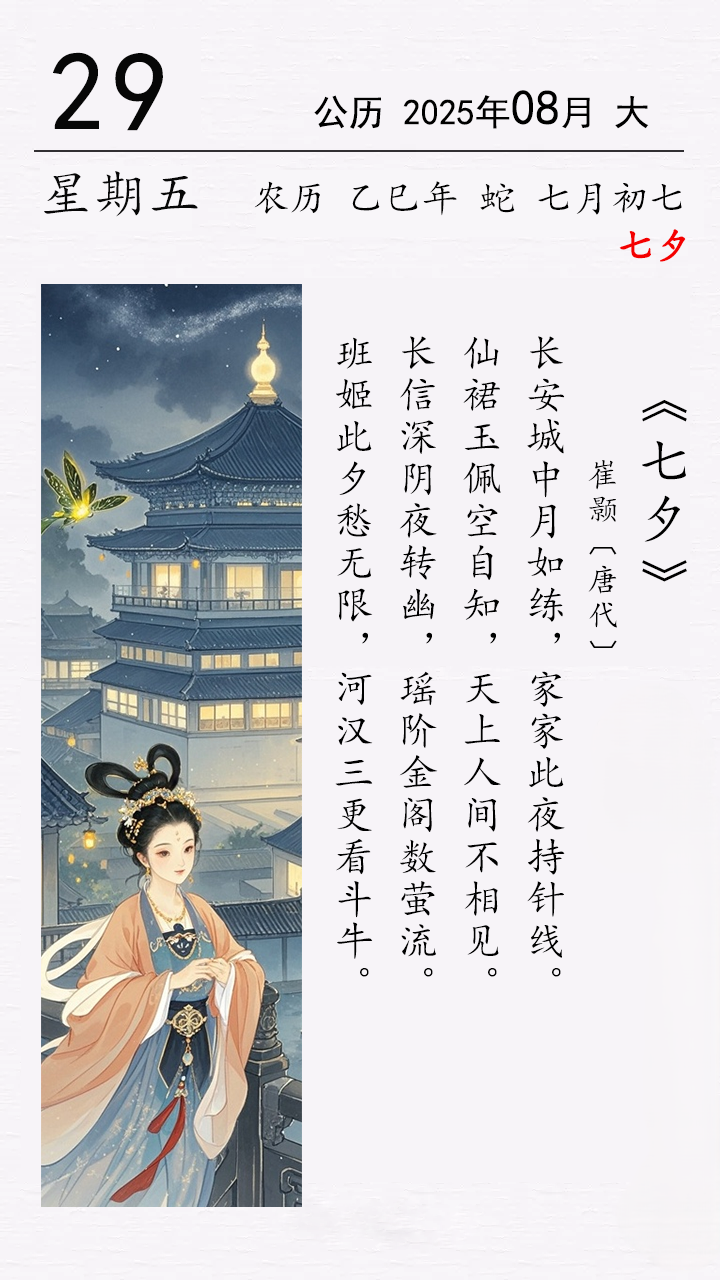 29
公历 2025年08月 大
星期五
农历 乙巳年 蛇 七月初七
七夕
《七夕》
崔颢〔唐代〕
长安城中月如练，家家此夜持针线。
仙裙玉佩空自知，天上人间不相见。
长信深阴夜转幽，瑶阶金阁数萤流。
班姬此夕愁无限，河汉三更看斗牛。